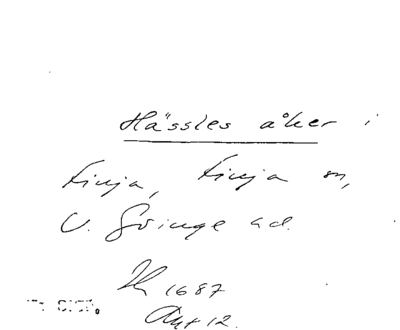 Hässles åker i
Finja, Finja sn,
V. Göinge hd.
1687
Akt 12.